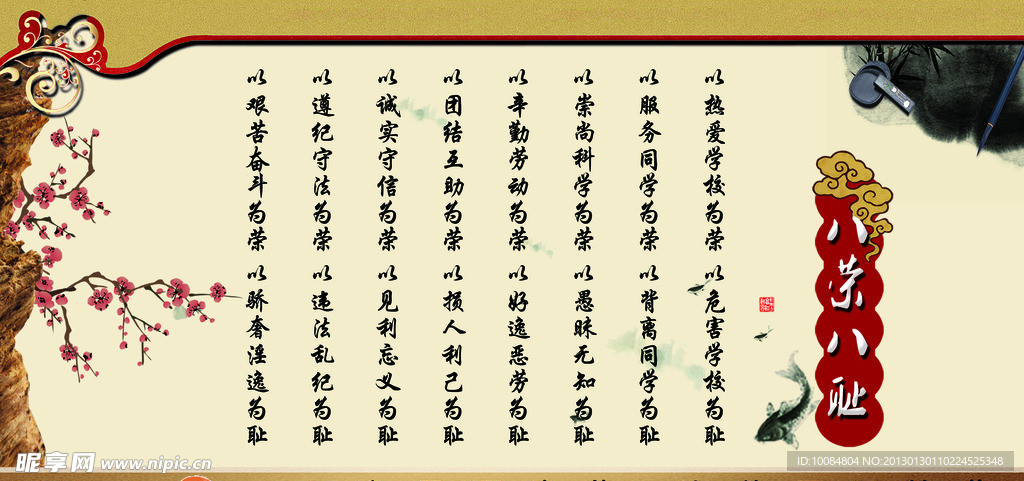 八荣八耻
以热爱学校为荣
以危害学校为耻
以服务同学为荣
以背离同学为耻
以崇尚科学为荣
以愚昧无知为耻
以辛勤劳动为荣
以好逸恶劳为耻
以团结互助为荣
以损人利己为耻
以诚实守信为荣
以见利忘义为耻
以遵纪守法为荣
以违法乱纪为耻
以艰苦奋斗为荣
以骄奢淫逸为耻
昵享网 www.nipic.cn
ID:10084804 NO:20130130110224525348